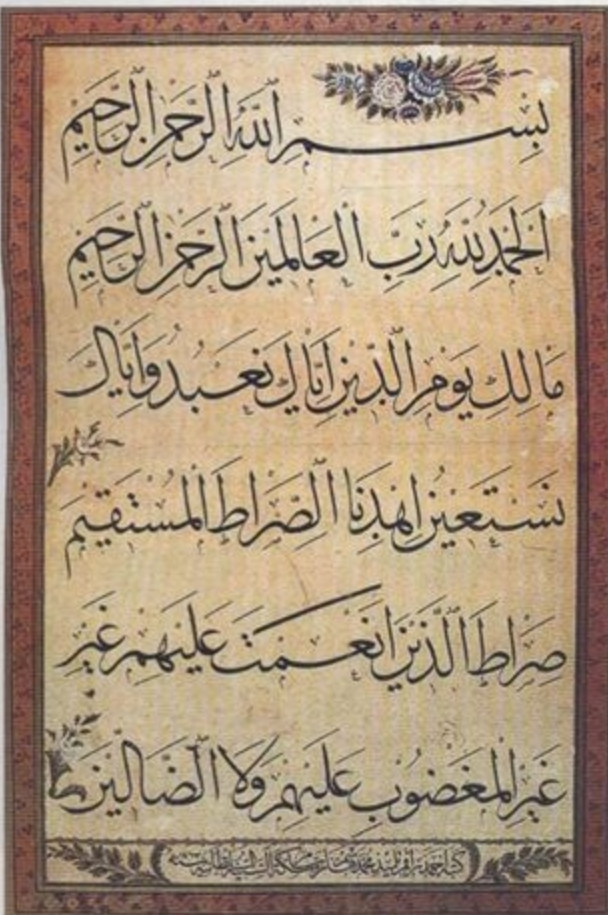 بِسْمِ اللّٰهِ الرَّحْمٰنِ الرَّحِيْمِ
اَلْحَمْدُ لِلّٰهِ رَبِّ الْعَالَمِيْنَ الرَّحْمٰنِ الرَّحِيْمِ
مَالِكِ يَوْمِ الدِّيْنِ اِيَّاكَ نَعْبُدُ وَاِيَّاكَ
نَسْتَعِيْنُ اِهْدِنَا الصِّرَاطَ الْمُسْتَقِيْمَ
صِرَاطَ الَّذِيْنَ اَنْعَمْتَ عَلَيْهِمْ غَيْرِ
غَيْرِ الْمَغْضُوْبِ عَلَيْهِمْ وَلَا الضَّالِّيْنَ